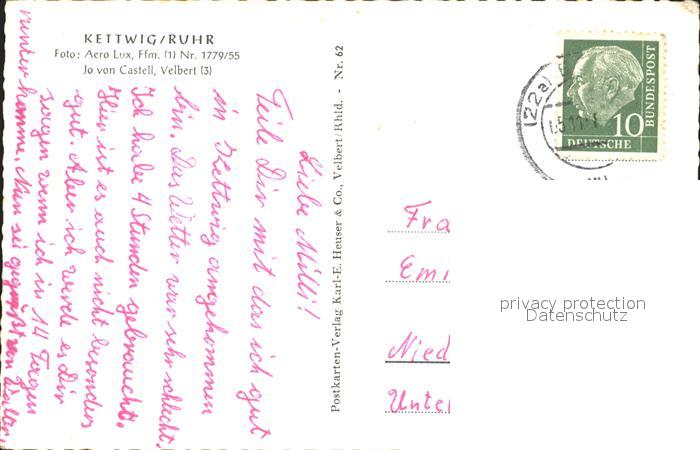 KETTWIG/RUHR
Foto: Aero Lux, Ffm. (1) Nr. 1779/55
Jo von Castell, Velbert (3)
Liebe Milli!
Teile Dir mit das ich gut
in Kettwig angekommen
bin. Das Wetter war sehr schlecht.
Ich habe 4 Stunden gebraucht.
Hier ist es auch nicht besonders
gut. Aber ich werde es Dir
sagen wenn ich in 14 Tagen
runter komme. Nun sei gegrüßt von
Postkarten-Verlag Karl-E. Heuser & Co., Velbert/Rhld. - Nr. 62
(22a)
10
DEUTSCHE
BUNDESPOST
Fra
Emi
Nied
Unte
privacy protection
Datenschutz